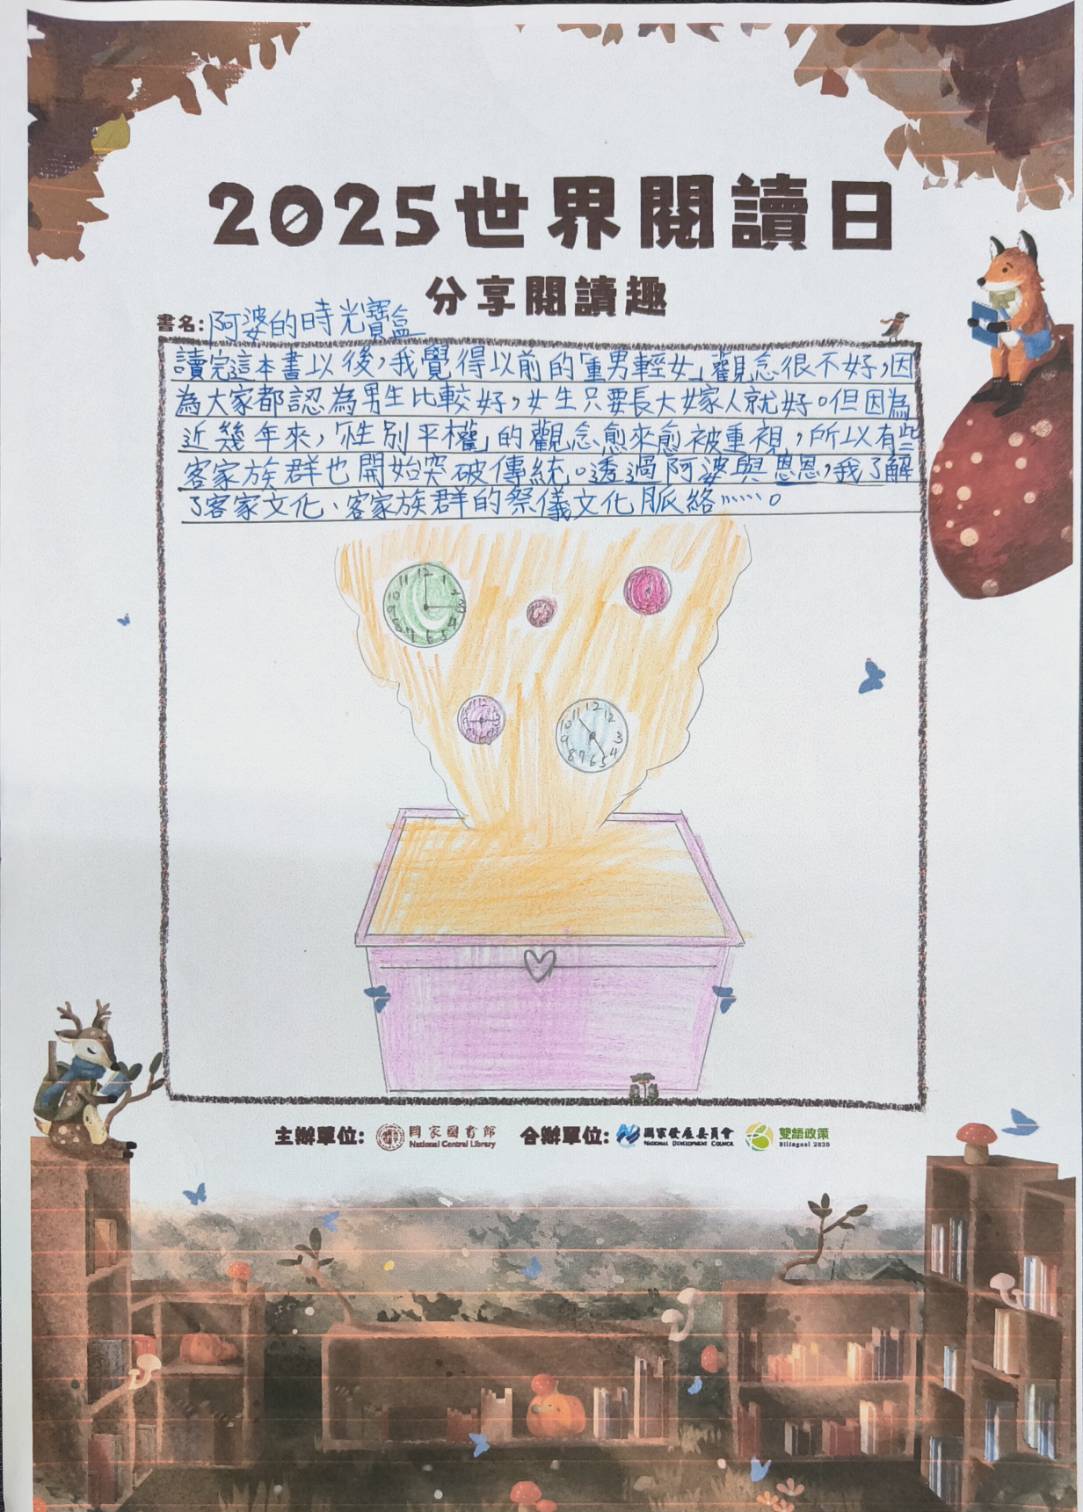 2025世界閱讀日
分享閱讀趣
書名:阿婆的時光寶盒
讀完這本書以後,我覺得以前的「重男輕女」觀念很不好,因
為大家都認為男生比較好,女生只要長大嫁人就好。但因為
近幾年來,「性別平權」的觀念愈來愈被重視,所以有些
客家族群也開始突破傳統。透過阿婆與恩恩,我了解
了客家文化、客家族群的祭儀文化脈絡……。
11 12 1
10 2
9 3
8 7 6 5 4
11 12 12
10
9 3
8 7 6 5 4
主辦單位: 國家圖書館 合辦單位: 國家發展委員會 雙語政策
National Central Library NATIONAL DEVELOPMENT COUNCIL Bilingual 2030